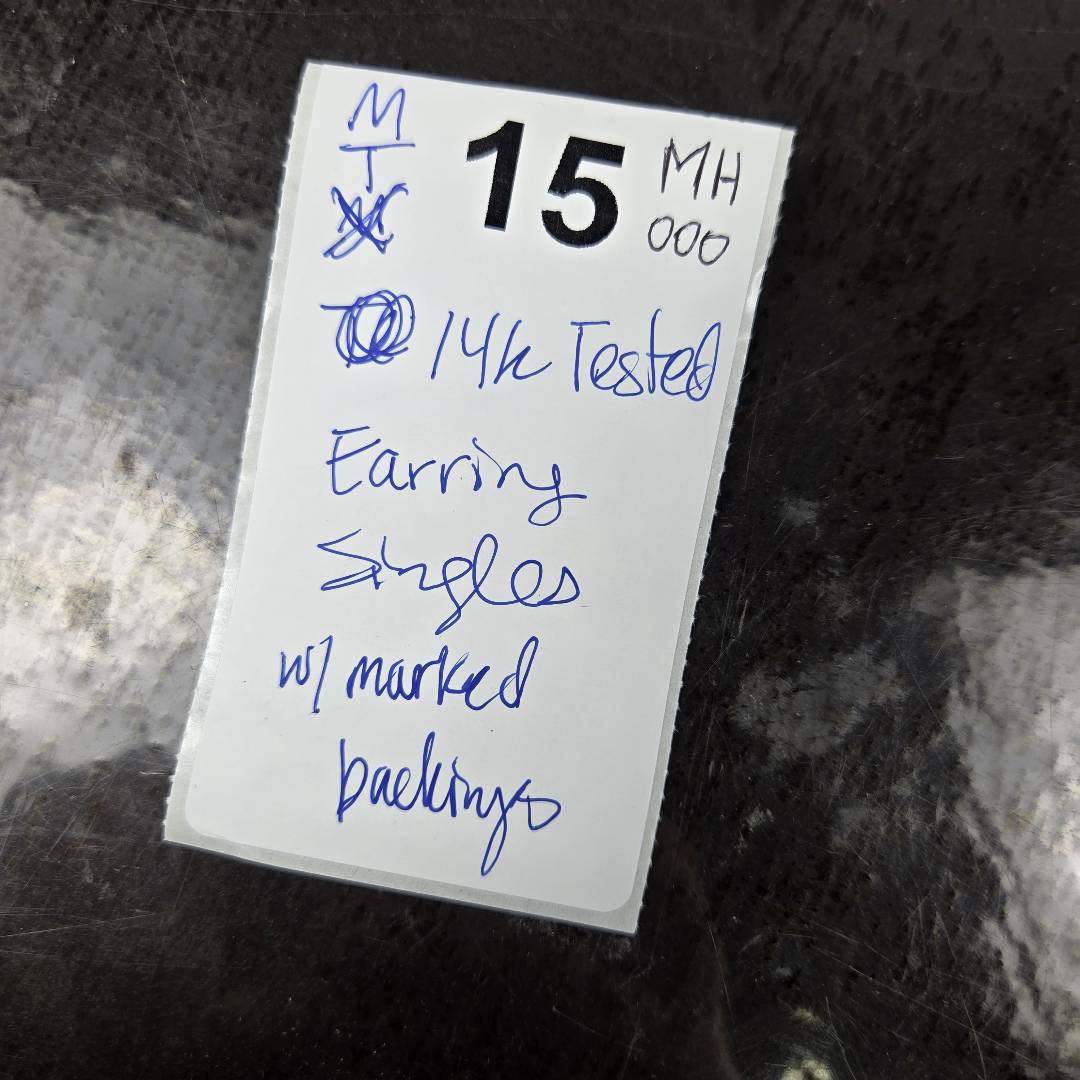 M
T
15
MH
000
14k Tested
Earring
Singles
w/ marked
backings